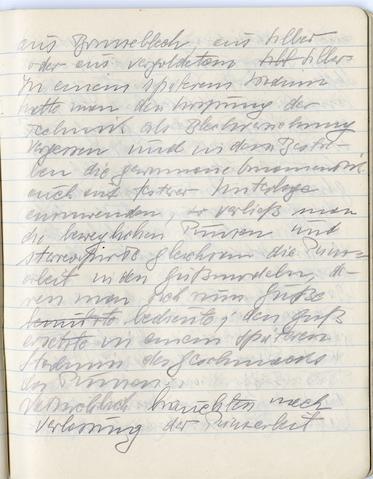 aus Bronzeblech, aus Silber
oder aus vergoldetem Silber.
In einem späteren Stadium
hatte man den Ursprung der
Technik als Blechverzierung
vergessen und in dem Bestre-
ben die gewonnene
auch auf fester Unterlage
anzuwenden, verließ man
die beweglichen Punzen und
gleichsam die Punz-
arbeit in den Gußmodeln, de-
ren man sich zum Guße
bediente; den Guß
ersetzte in einem späteren
Stadium des Geschmacks
das Punzen;
brauchten nach
der Punzarbeit